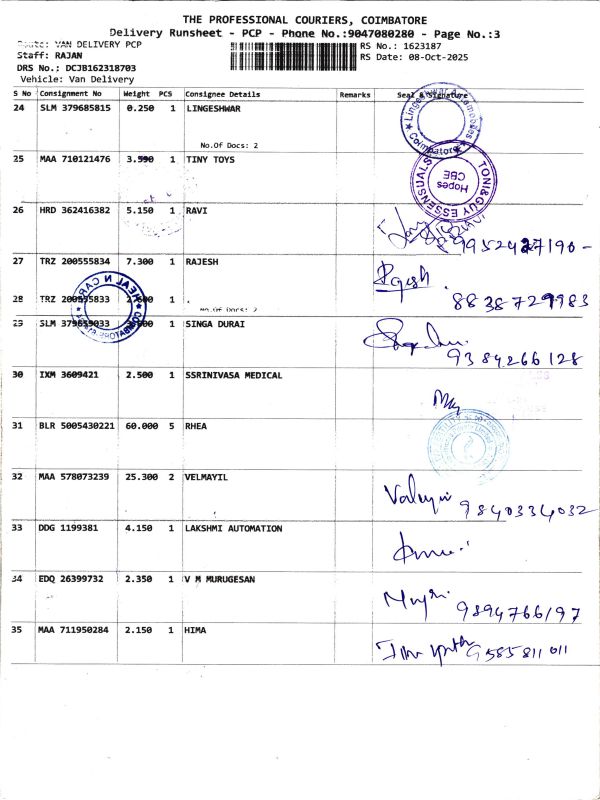 THE PROFESSIONAL COURIERS, COIMBATORE
Delivery Runsheet - PCP - Phone No.:9047080280 - Page No.:3
Route: VAN DELIVERY PCP
RS No.: 1623187
Staff: RAJAN
RS Date: 08-Oct-2025
DRS No.: DCJB162318703
Vehicle: Van Delivery
S No Consignment No Weight PCS Consignee Details Remarks Seal & Signature
24 SLM 379685815 0.250 1 LINGESHWAR
No.Of Docs: 2
Lingeshwar Automobiles
Coimbatore
25 MAA 710121476 3.590 1 TINY TOYS
TONI&GUY ESSENSUALS
Hopes
CBE
26 HRD 362416382 5.150 1 RAVI
27 TRZ 200555834 7.300 1 RAJESH
Rajesh
8838729983
28 TRZ 200555833 1 .
No.Of Docs: 2
HEAL N CARE
29 SLM 379659033 1 SINGA DURAI
9384266128
30 IXM 3609421 2.500 1 SSRINIVASA MEDICAL
31 BLR 5005430221 60.000 5 RHEA
32 MAA 578073239 25.300 2 VELMAYIL
9840334032
33 DDG 1199381 4.150 1 LAKSHMI AUTOMATION
34 EDQ 26399732 2.350 1 V M MURUGESAN
9894766197
35 MAA 711950284 2.150 1 HIMA
9585811011